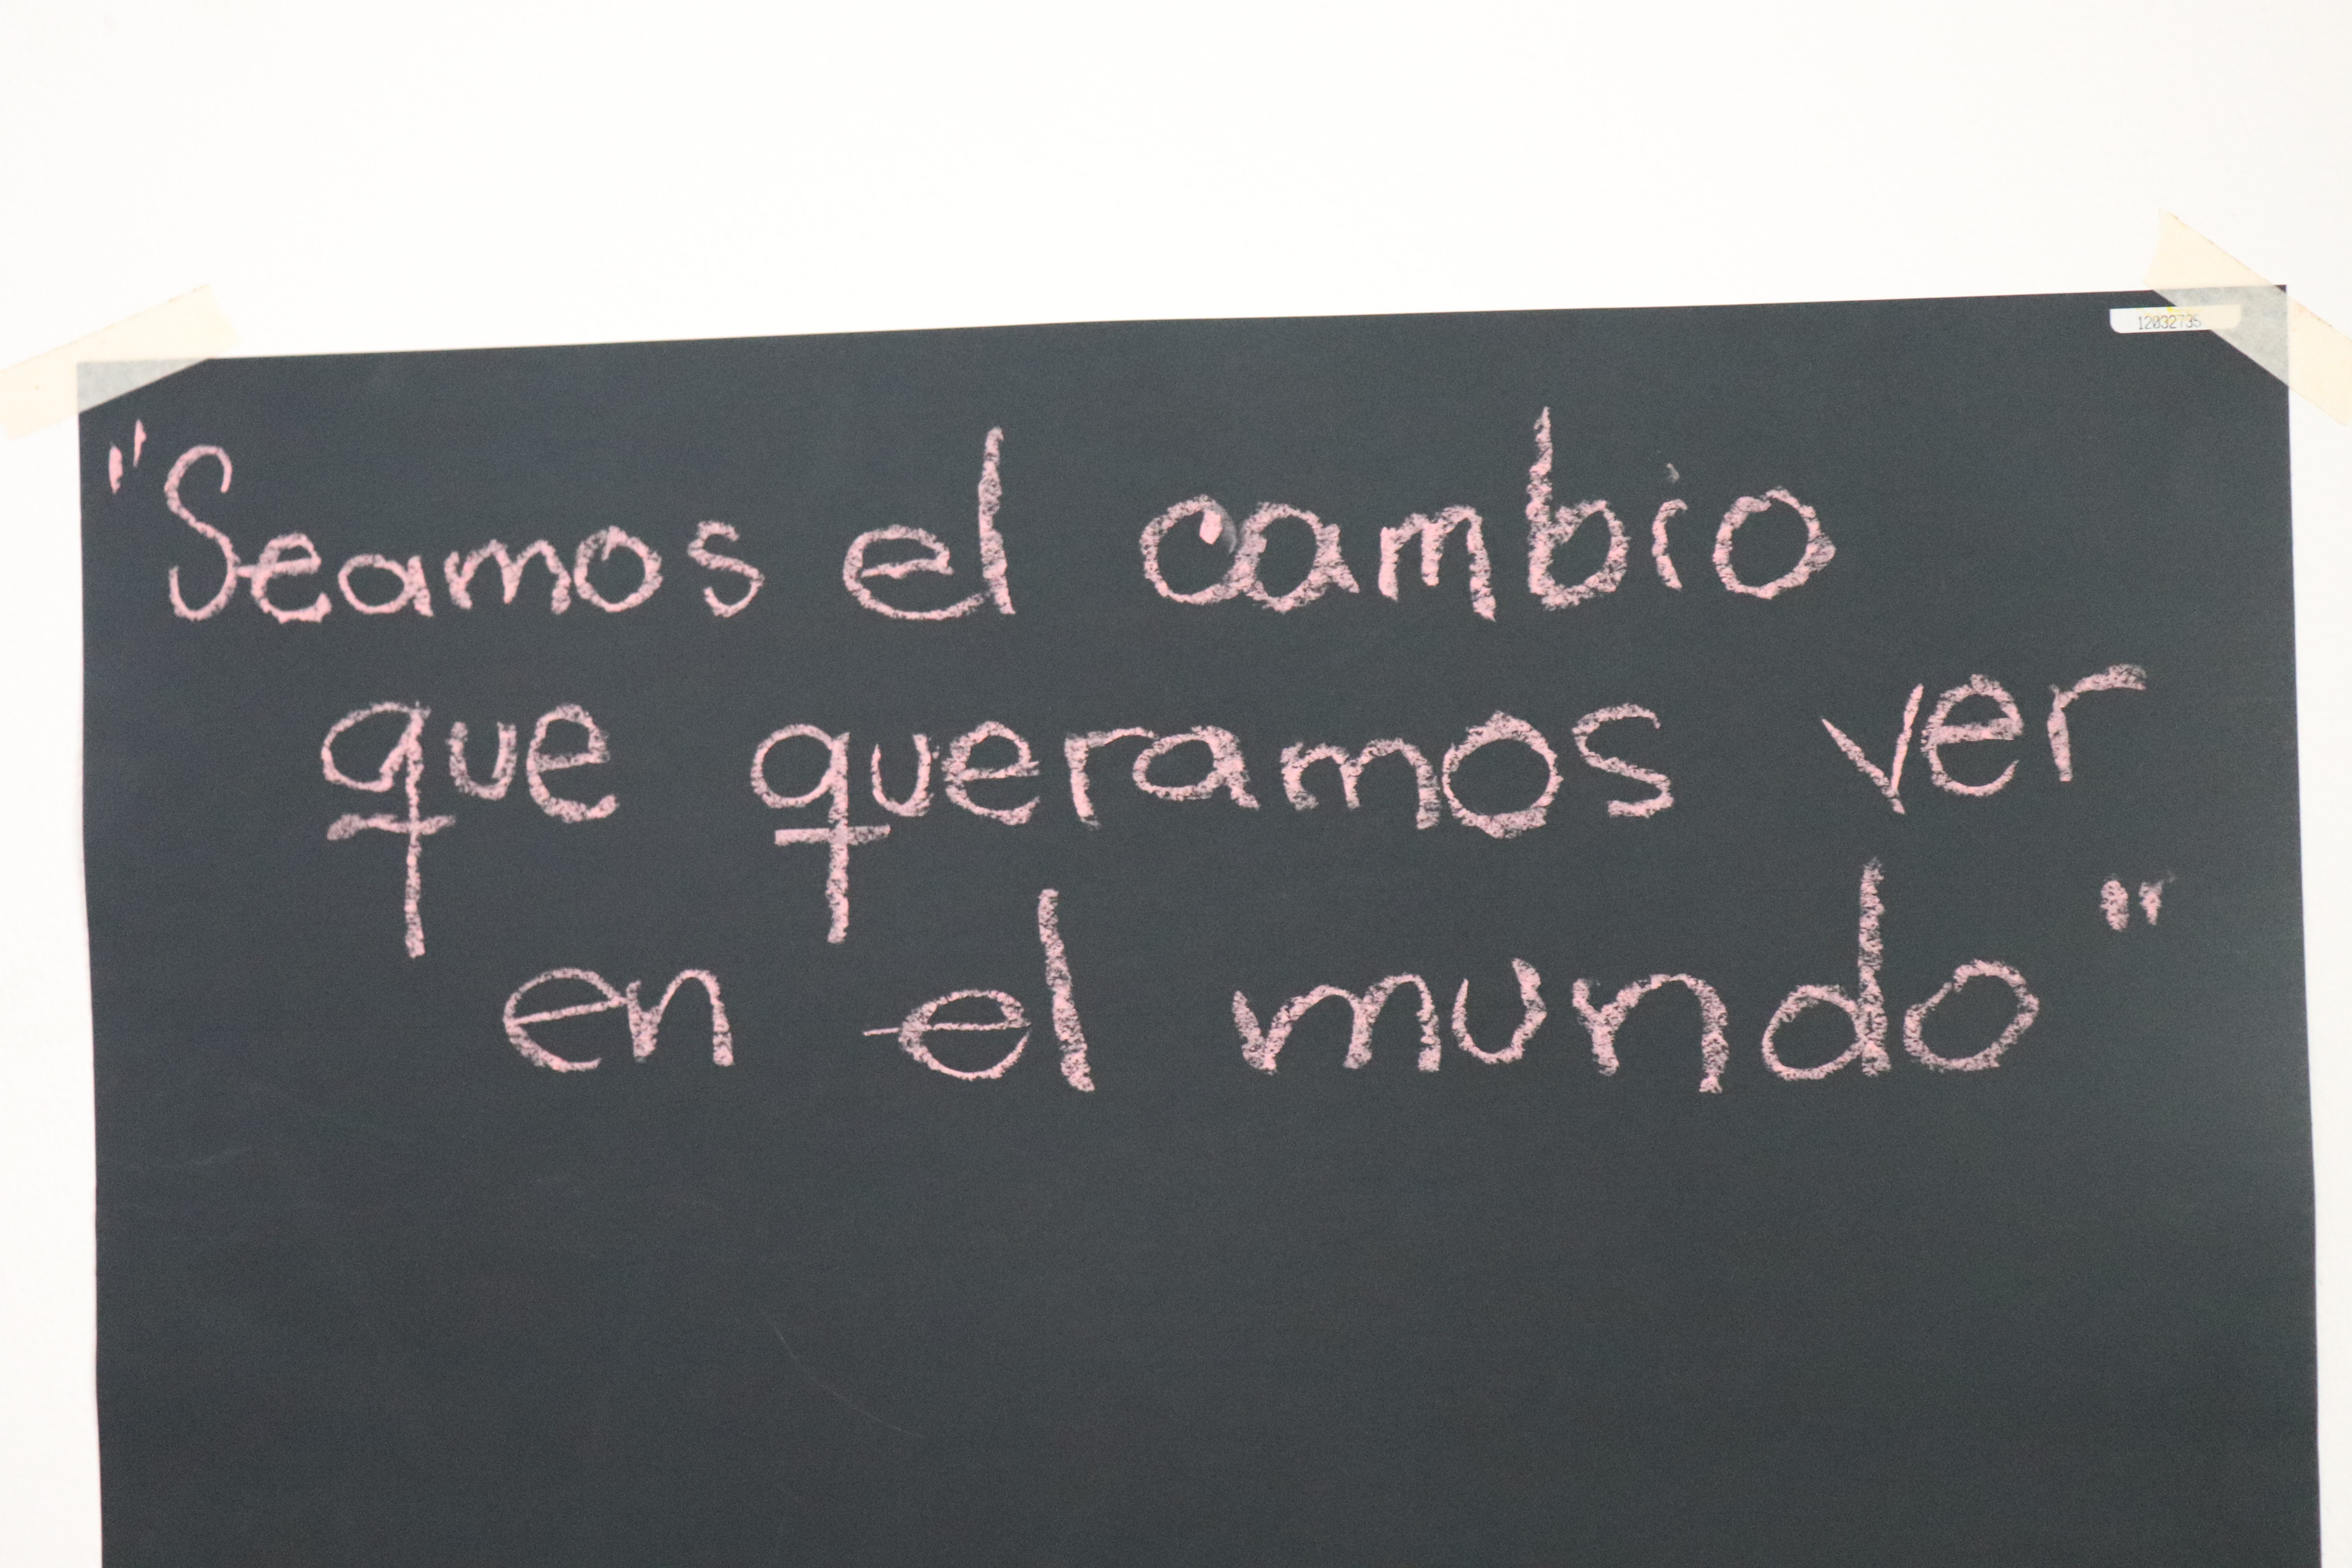 12032735
"Seamos el cambio
que queramos ver
en el mundo"